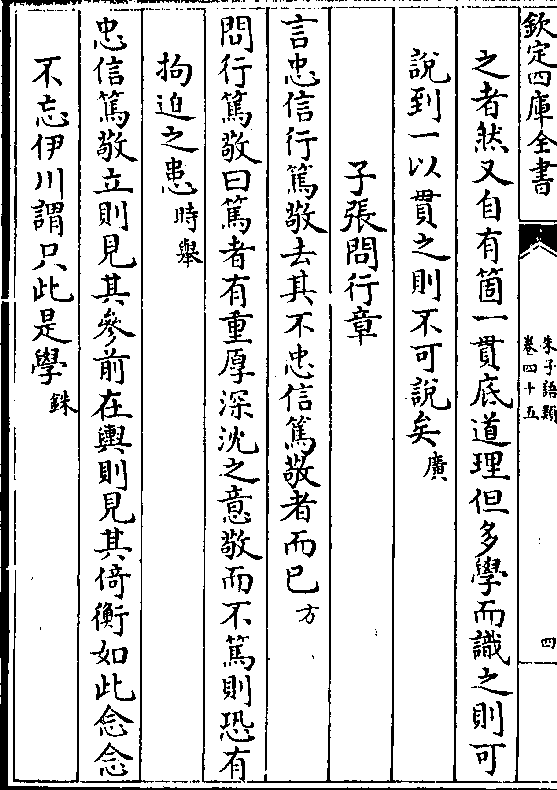 欽定四庫全書
朱子語類
卷四十五
四
之者然又自有箇一貫底道理但多學而識之則可
說到一以貫之則不可說矣廣
子張問行章
言忠信行篤敬去其不忠信篤敬者而已方
問行篤敬曰篤者有重厚深沈之意敬而不篤則恐有
拘迫之患時舉
忠信篤敬立則見其參前在輿則見其倚衡如此念念
不忘伊川謂只此是學銖